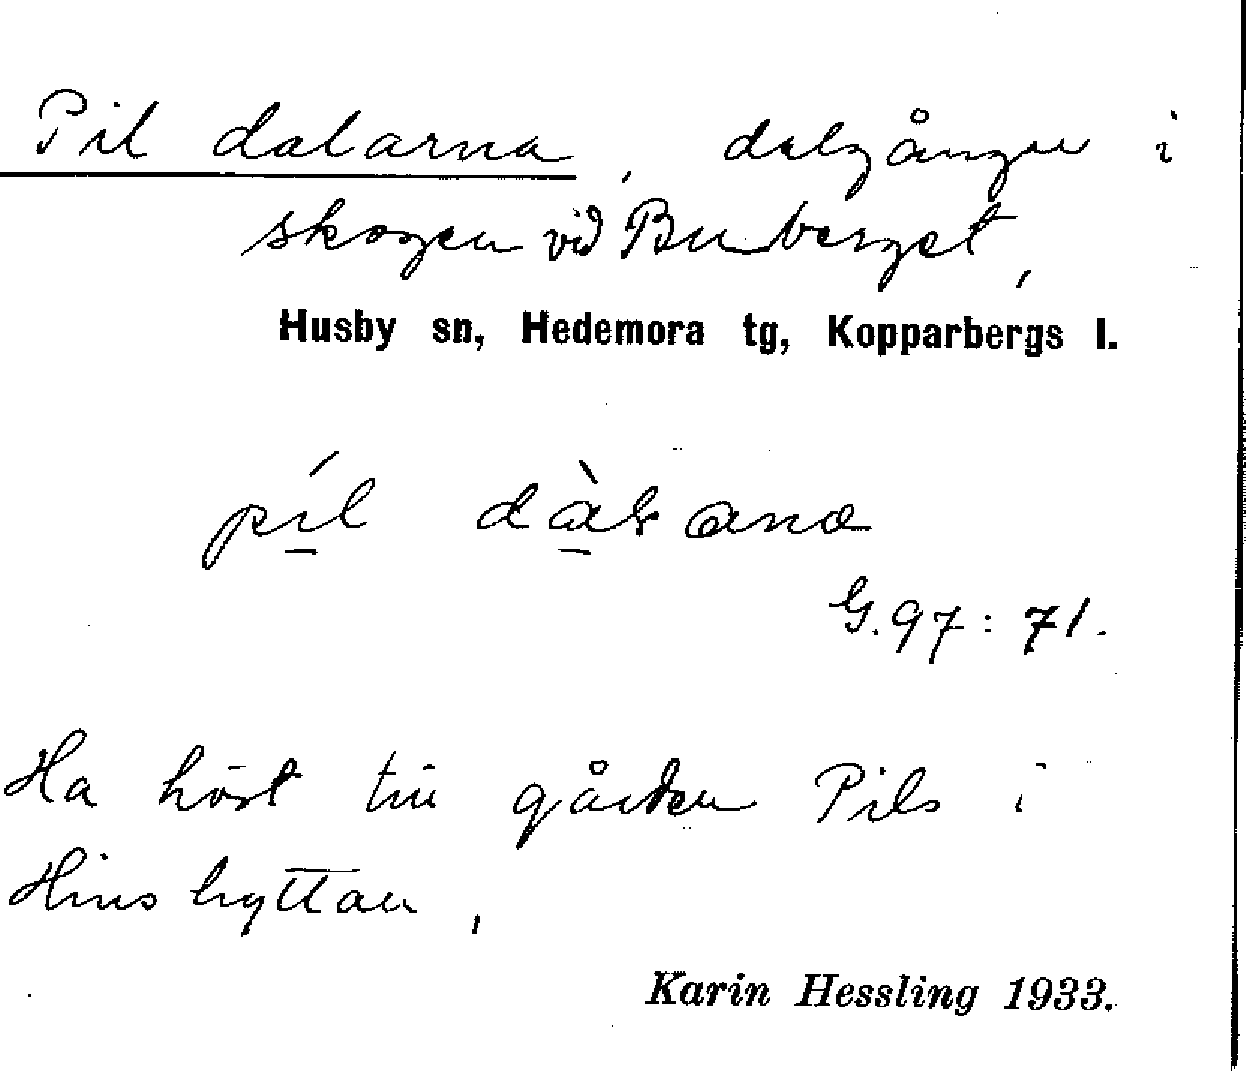 Pil dalarna, dalgångar i
skogen vid Buberget,
Husby sn, Hedemora tg, Kopparbergs l.
píl dàlana
G. 97: 71.
Ha hört till gården Pils i
Hinshyttan,
Karin Hessling 1933.